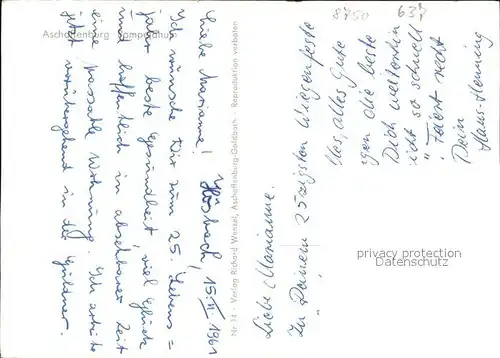 Aschaffenburg Pompejanum
Hösbach, 15.II.1961
Liebe Marianne!
Ich wünsche Dir zum 25. Lebens=
jahr beste Gesundheit, viel Glück
und hoffentlich in absehbarer Zeit
eine passable Wohnung. Ich arbeite
jetzt vorübergehend in der
Nr. 14 - Verlag Richard Wenzel, Aschaffenburg-Goldbach - Reproduktion verboten
Liebe Marianne.
Zu Deinem 25zigsten Wiegenfeste
alles Gute
die beste
Dich weiterhin
so schnell
Feiert recht
Dein
Hans-Henning
8750
637
privacy protection
Datenschutz